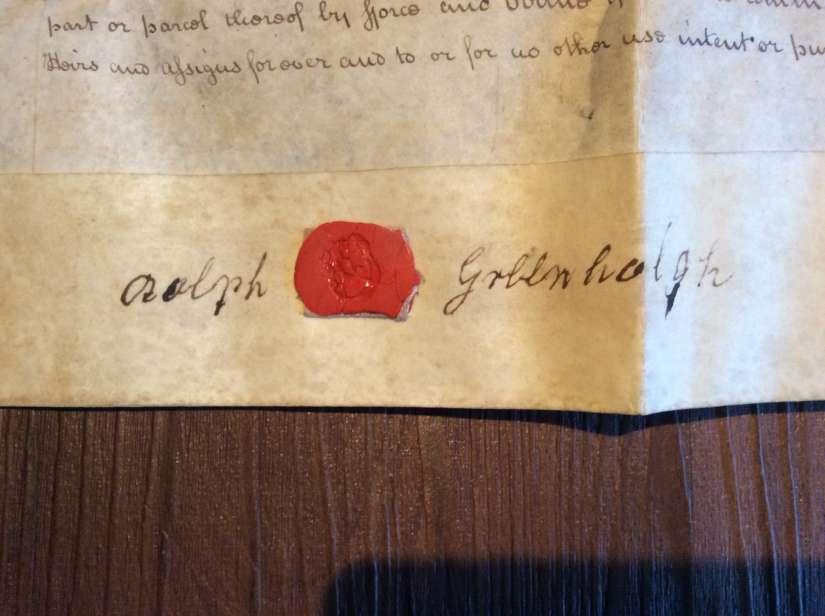 part or parcel thereof by fforce and
Heirs and assigns for ever and to or for no other use intent or pu
Rolph Greenholgh